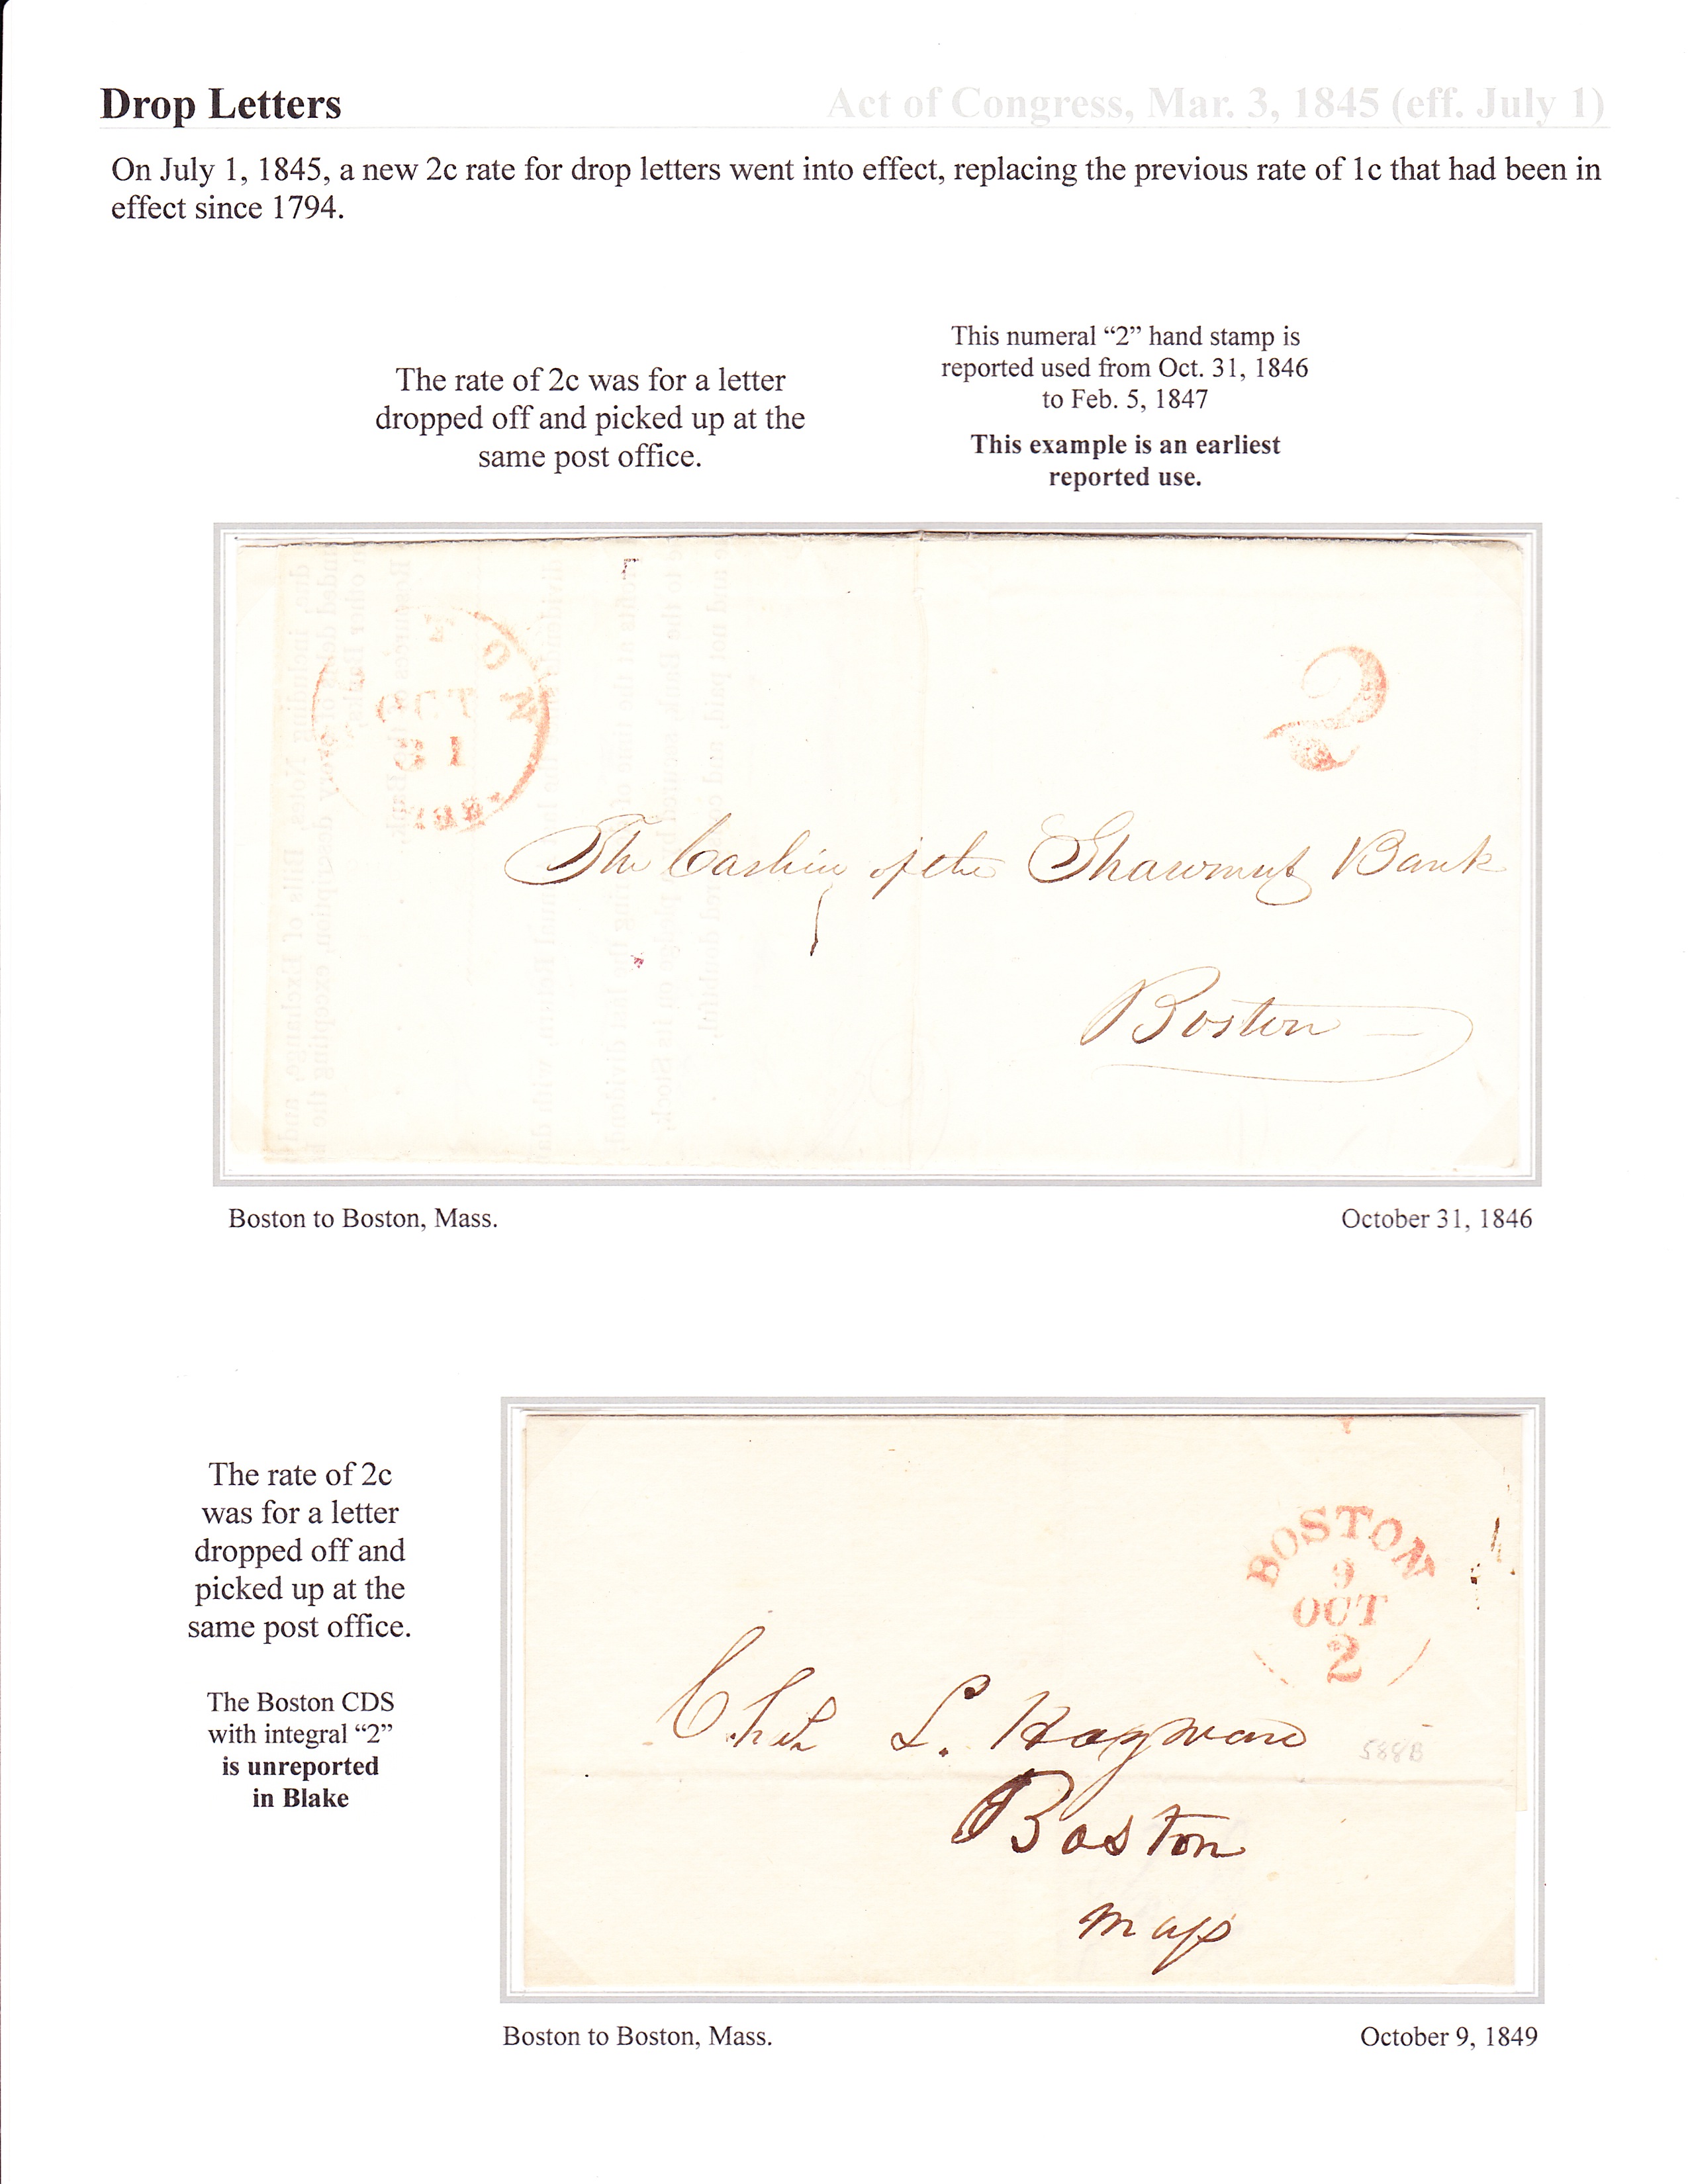 Drop Letters
Act of Congress, Mar. 3, 1845 (eff. July 1)
On July 1, 1845, a new 2c rate for drop letters went into effect, replacing the previous rate of 1c that had been in
effect since 1794.
The rate of 2c was for a letter
dropped off and picked up at the
same post office.
This numeral “2” hand stamp is
reported used from Oct. 31, 1846
to Feb. 5, 1847
This example is an earliest
reported use.
2
The Cashier of the Shawmut Bank
Boston
Boston to Boston, Mass.
October 31, 1846
The rate of 2c
was for a letter
dropped off and
picked up at the
same post office.
The Boston CDS
with integral “2”
is unreported
in Blake
BOSTON
9
OCT
2
L. Hayward
588B
Boston
Mass
Boston to Boston, Mass.
October 9, 1849